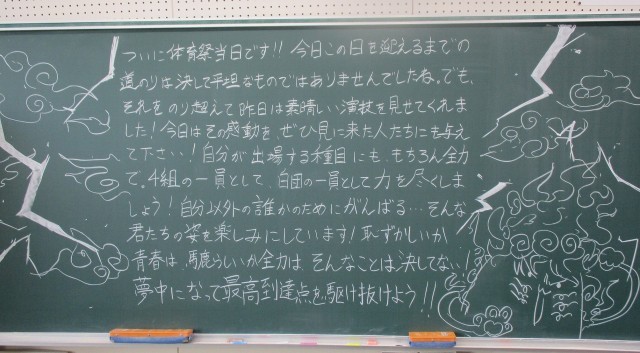 ついに体育祭当日です!! 今日この日を迎えるまでの
道のりは決して平坦なものではありませんでしたね。でも、
それをのり超えて昨日は素晴しい演技を見せてくれまし
た!今日はその感動を、ぜひ見に来た人たちにも与え
て下さい!自分が出場する種目にも、もちろん全力
で。4組の一員として、自団の一員として力を尽くしま
しょう!自分以外の誰かのためにがんばる…そんな
君たちの姿を楽しみにしています!恥ずかしいか
青春は、馬鹿らしいか全力は、そんなことは決してない!
夢中になって最高到達点を駆け抜けよう!!